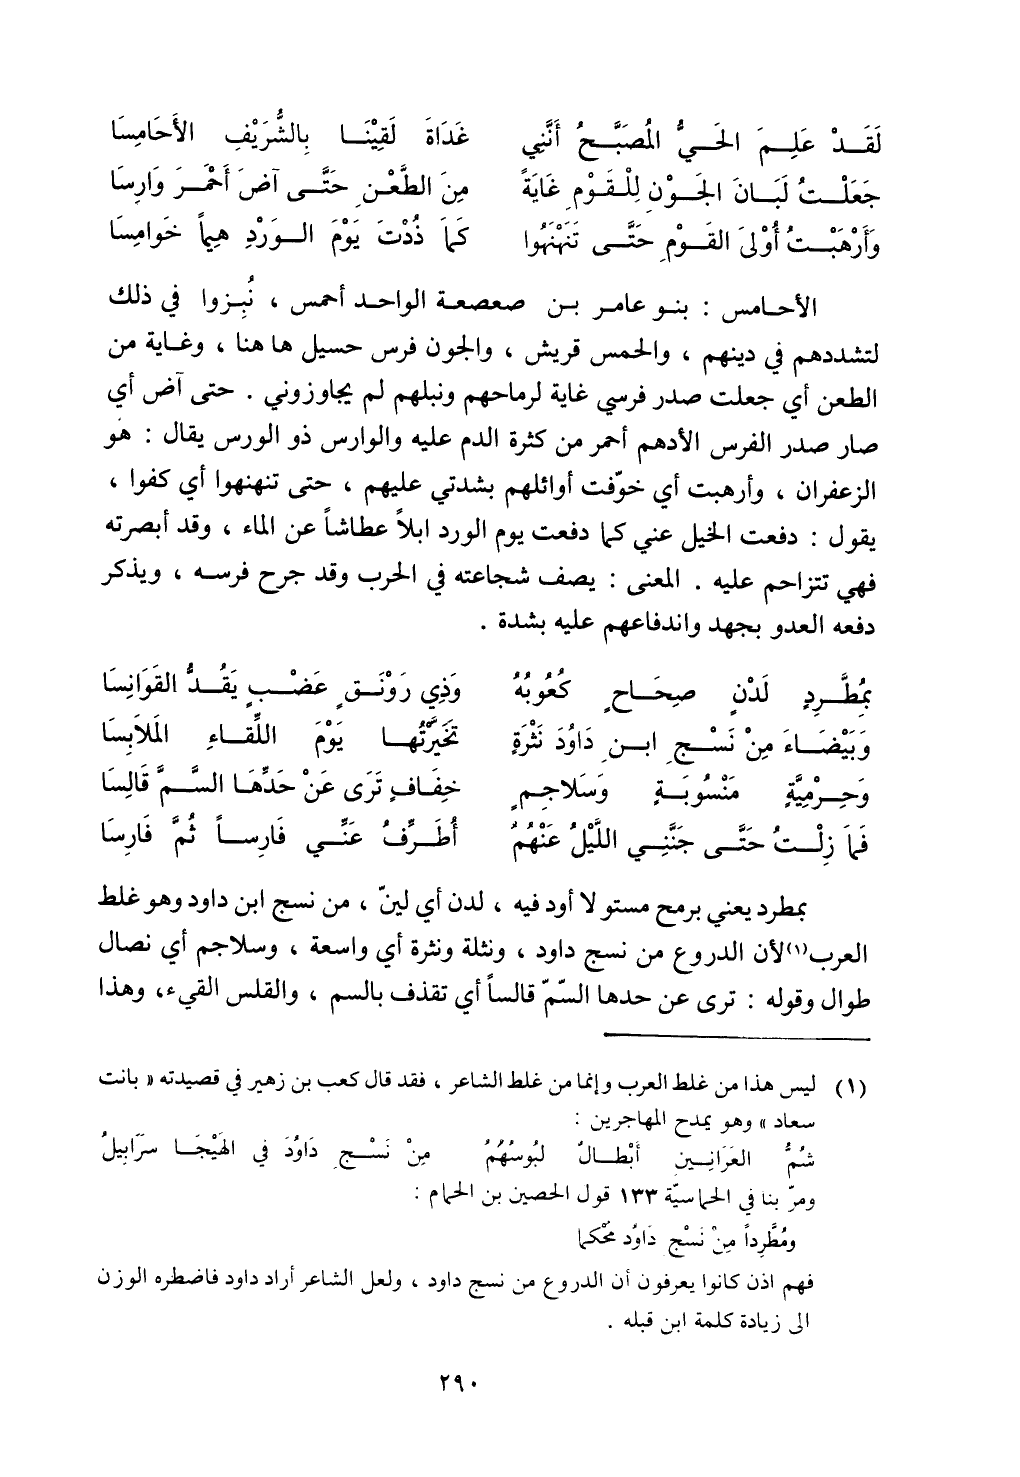 لَقَدْ عَلِمَ الحَيُّ المُصَبَّحُ أَنَّنِي غَدَاةَ لَقِيْنَا بِالشُّرَيْفِ الأَحَامِسَا
جَعَلْتُ لَبَانَ الجَوْنِ لِلْقَوْمِ غَايَةً مِنَ الطَّعْنِ حَتَّى آضَ أَحْمَرَ وَارِسَا
وَأَرْهَبْتُ أُوْلَى القَوْمِ حَتَّى تَنَهْنَهُوا كَمَا ذُدْتَ يَوْمَ الوِرْدِ هِيماً خَوامِسَا
الأحامس : بنو عامر بن صعصعة الواحد أحمس ، نُبِزوا في ذلك
لتشددهم في دينهم ، والحمس قريش ، والجون فرس حسيل ها هنا ، وغاية من
الطعن أي جعلت صدر فرسي غاية لرماحهم ونبلهم لم يجاوزوني . حتى آض أي
صار صدر الفرس الأدهم أحمر من كثرة الدم عليه والوارس ذو الورس يقال : هو
الزعفران ، وأرهبت أي خوّفت أوائلهم بشدتي عليهم ، حتى تنهنهوا أي كفوا ،
يقول : دفعت الخيل عني كما دفعت يوم الورد ابلاً عطاشاً عن الماء ، وقد أبصرته
فهي تتزاحم عليه . المعنى : يصف شجاعته في الحرب وقد جرح فرسه ، ويذكر
دفعه العدو بجهد واندفاعهم عليه بشدة .
بمُطَّرِدٍ لَدْنٍ صِحَاحٍ كُعُوبُهُ وَذِي رَوْنَقٍ عَضْبٍ يَقُدُّ القَوَانِسَا
وَبَيْضَاءَ مِنْ نَسْجِ ابنِ دَاوُدَ نَثْرَةٍ تَخَيَّرْتُها يَوْمَ اللِّقَاءِ المَلَابِسَا
وَحِرْمِيَّةٍ مَنْسُوبَةٍ وَسَلاجِمٍ خِفَافٍ تَرَى عَنْ حَدِّهَا السَّمَّ قَالِسَا
فَمَا زِلْتُ حَتَّى جَنَّنِي اللَّيْلُ عَنْهُمُ أُطَرِّفُ عَنِّي فَارِساً ثُمَّ فَارِسَا
بمطرد يعني برمح مستو لا أود فيه ، لدن أي لينّ ، من نسج ابن داود وهو غلط
العرب(١)لأن الدروع من نسج داود ، ونثلة ونثرة أي واسعة ، وسلاجم أي نصال
طوال وقوله : ترى عن حدها السّمّ قالساً أي تقذف بالسم ، والقلس القيء، وهذا
(١) ليس هذا من غلط العرب وإنما من غلط الشاعر ، فقد قال كعب بن زهير في قصيدته « بانت
سعاد » وهو يمدح المهاجرين :
شُمُّ العَرَانِينِ أَبْطَالٌ لبُوسُهُمُ مِنْ نَسْجِ دَاوُدَ في الهَيْجَا سَرَابِيلُ
ومرّ بنا في الحماسيّة ١٣٣ قول الحصين بن الحمام :
ومُطَّرِداً مِنْ نَسْجِ دَاوُد مُحْكما
فهم اذن كانوا يعرفون أن الدروع من نسج داود ، ولعل الشاعر أراد داود فاضطره الوزن
الى زيادة كلمة ابن قبله .
٢٩٠